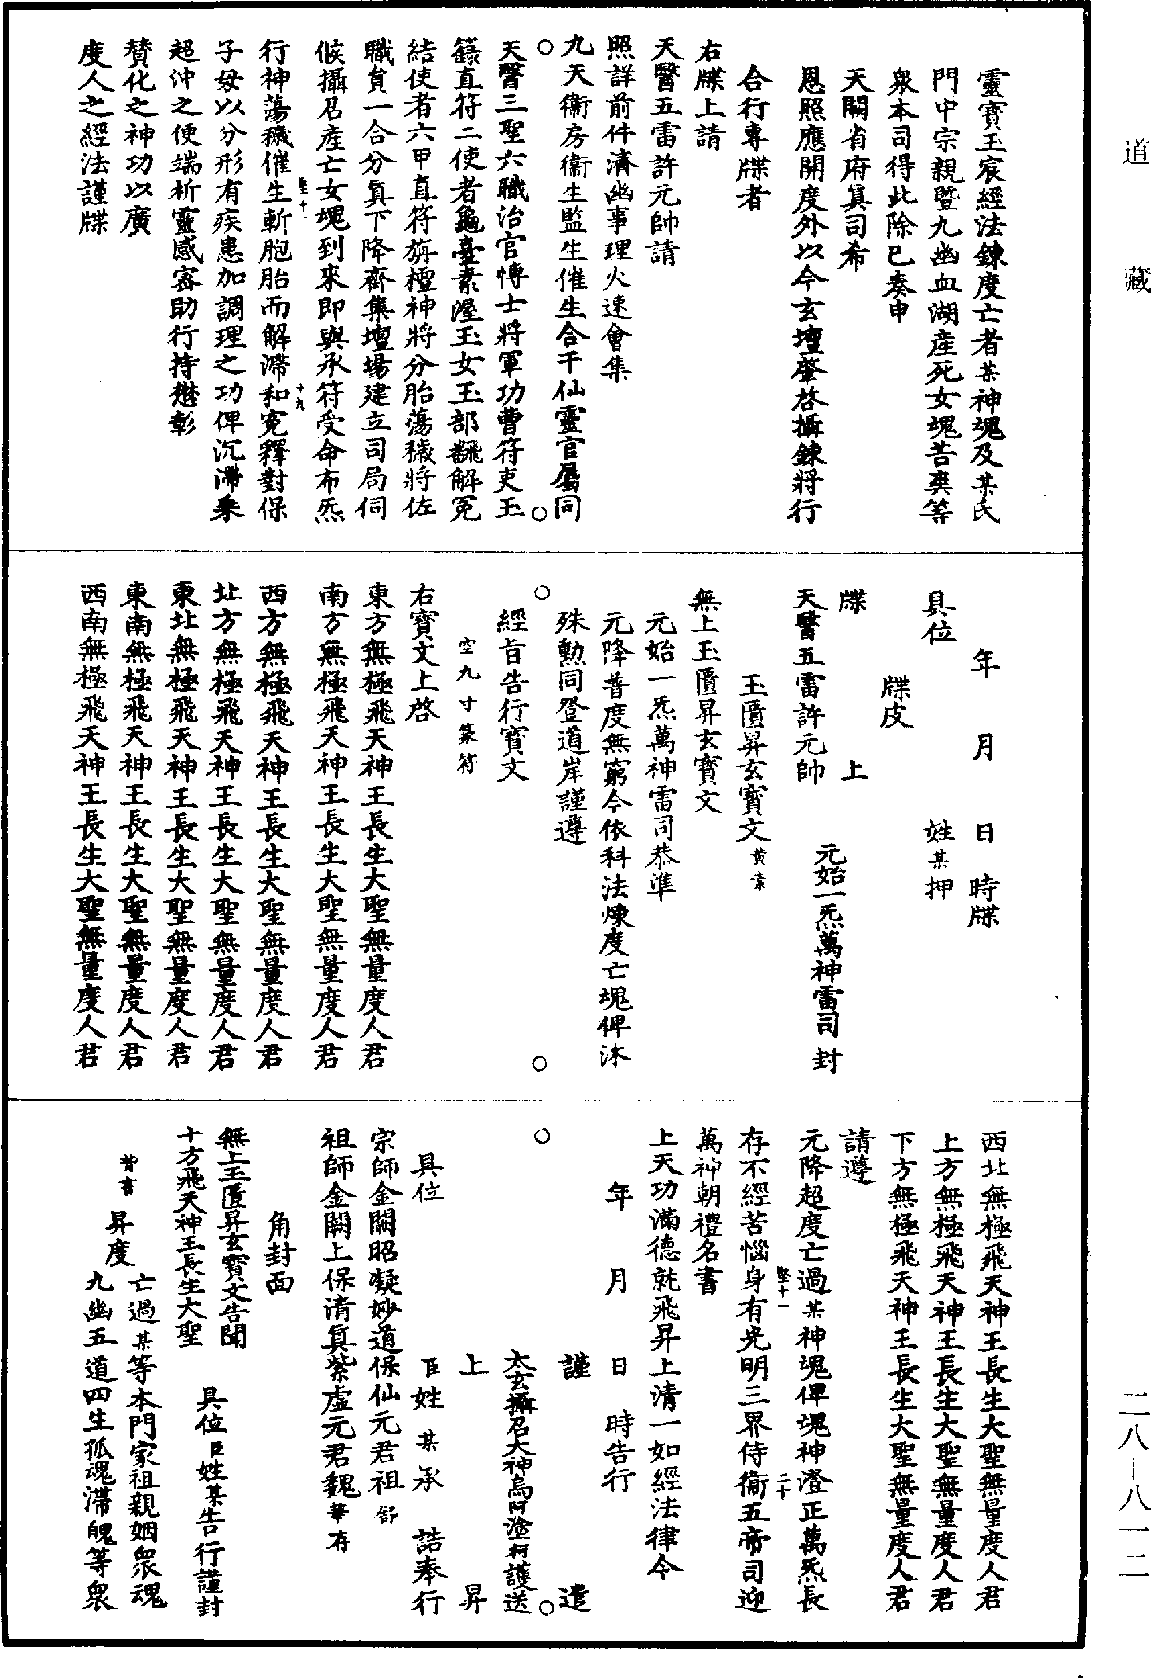 道藏
靈寶玉宸經法鍊度亡者某神魂及某氏
門中宗親暨九幽血湖產死女魂苦爽等
衆本司得此除已奏申
天闕省府眞司希
恩照應開度外以今玄壇肇啓攝鍊將行
合行專牒者
右牒上請
天醫五雷許元帥請
照詳前件濟幽事理火速會集
九天衞房衞生監生催生合千仙靈官屬同
天醫三聖六職治官博士將軍功曹符吏玉
籙直符二使者龜臺素渥玉女玉部飜解冤
結使者六甲直符旃檀神將分胎蕩穢將佐
職員一合分眞下降齋集壇場建立司局伺
候攝召產亡女魂到來即與承符受命布炁
行神蕩穢催生斬胞胎而解滯和冤釋對保
子母以分形有疾患加調理之功俾沉滯乗
超沖之使端析靈感密助行持懋彰
贊化之神功以廣
度人之經法謹牒
年月日時牒
具位姓某押
牒皮
牒上
天醫五雷許元帥
元始一炁萬神雷司封
玉匱昇玄寳文黄素
無上玉匱昇玄寳文
元始一炁萬神雷司恭準
元降普度無窮今依科法煉度亡魂俾沐
殊勳同登道岸謹遵
經旨告行寳文
空九寸篆符
右寳文上啓
東方無極飛天神王長生大聖無量度人君
南方無極飛天神王長生大聖無量度人君
西方無極飛天神王長生大聖無量度人君
北方無極飛天神王長生大聖無量度人君
東北無極飛天神王長生大聖無量度人君
東南無極飛天神王長生大聖無量度人君
西南無極飛天神王長生大聖無量度人君
西北無極飛天神王長生大聖無量度人君
上方無極飛天神王長生大聖無量度人君
下方無極飛天神王長生大聖無量度人君
請遵
元降超度亡過某神魂俾魂神澄正萬炁長
存不經苦惱身有光明三界侍衞五帝司迎
萬神朝禮名書
上天功滿德就飛昇上清一如經法律令
年月日時告行
謹遣
太玄攝召大神烏阿塗柯護送
上昇
具位臣姓某承誥奉行
宗師金闕昭凝妙道保仙元君祖舒
祖師金闕上保清眞紫虛元君魏華存
角封面
無上玉匱昇玄寳文告聞
具位臣姓某告行謹封
十方飛天神王長生大聖
背書
昇度
亡過某等本門家祖親姻衆魂
九幽五道四生孤魂滯魄等衆
二八—八一二